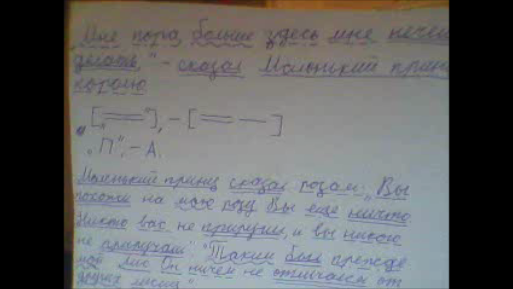 „Мне пора, больше здесь мне нечем
делать," - сказал Маленький принц
королю.
„[═══"], - [═══ —]
„П", - А.
Маленький принц сказал розам: „Вы
похожи на мою розу Вы ещё ничто
Никто вас не приручил, и вы никого
не приручали. "Таким был прежде
мой Лис Он ничем не отличался от
других лисиц"